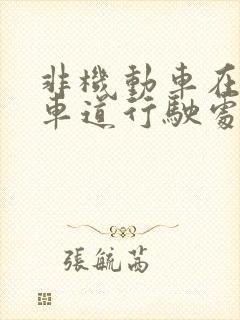 非機動車在
車道行駛處
張毓芮